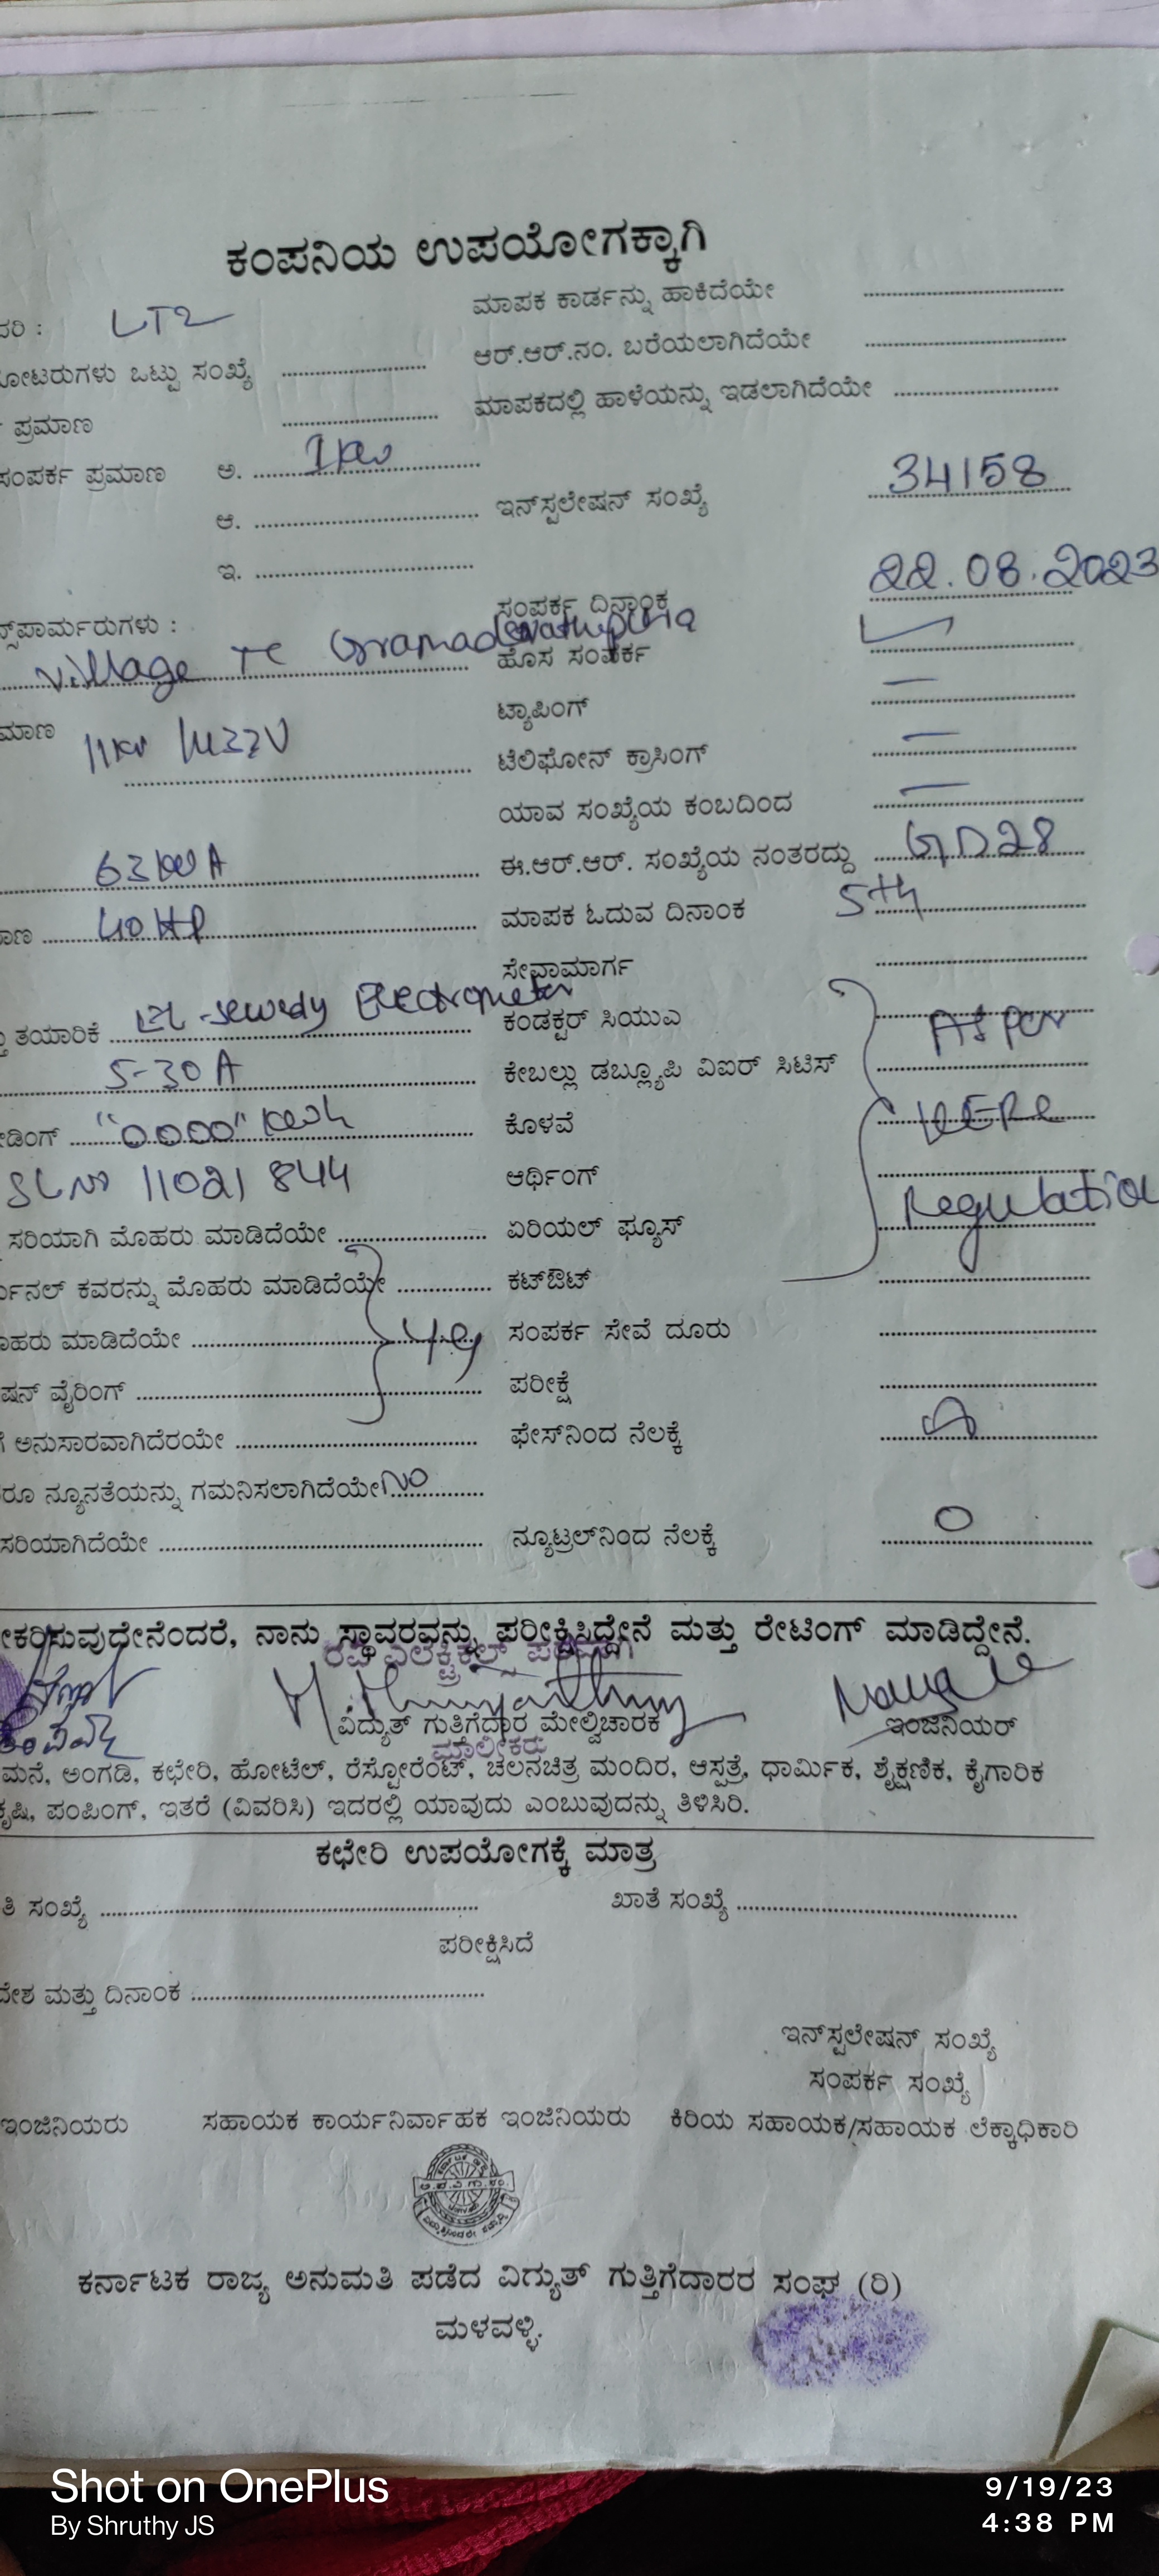 ಕಂಪನಿಯ ಉಪಯೋಗಕ್ಕಾಗಿ
ದರಿ : LT2
ಮಾಪಕ ಕಾರ್ಡನ್ನು ಹಾಕಿದೆಯೇ
ೋಟರುಗಳು ಒಟ್ಟು ಸಂಖ್ಯೆ
ಆರ್.ಆರ್.ನಂ. ಬರೆಯಲಾಗಿದೆಯೇ
ಪ್ರಮಾಣ
ಮಾಪಕದಲ್ಲಿ ಹಾಳೆಯನ್ನು ಇಡಲಾಗಿದೆಯೇ
ಸಂಪರ್ಕ ಪ್ರಮಾಣ ಅ. 1kw
ಆ.
ಇನ್‌ಸ್ಟಲೇಷನ್ ಸಂಖ್ಯೆ 34158
ಇ.
ಸಂಪರ್ಕ ದಿನಾಂಕ 22.08.2023
ನ್ಸ್‌ಫಾರ್ಮರುಗಳು :
village TC Gramadevathipura
ಹೊಸ ಸಂಪರ್ಕ
ಟ್ಯಾಪಿಂಗ್ —
ಮಾಣ 11kv
ಟೆಲಿಫೋನ್ ಕ್ರಾಸಿಂಗ್ —
ಯಾವ ಸಂಖ್ಯೆಯ ಕಂಬದಿಂದ —
63
ಈ.ಆರ್.ಆರ್. ಸಂಖ್ಯೆಯ ನಂತರದ್ದು GD28
ಾಣ 40 HP
ಮಾಪಕ ಓದುವ ದಿನಾಂಕ 5th
ಸೇವಾಮಾರ್ಗ
ತು ತಯಾರಿಕೆ Electrometer
ಕಂಡಕ್ಟರ್ ಸಿಯುಎ As per
5-30 A
ಕೇಬಲ್ಲು ಡಬ್ಲ್ಯೂಪಿ ವಿಐರ್ ಸಿಟಿಸ್
ೀಡಿಂಗ್ "0000" kwh
ಕೊಳವೆ KERC
SL No 11021844
ಆರ್ಥಿಂಗ್
ಸರಿಯಾಗಿ ಮೊಹರು ಮಾಡಿದೆಯೇ
ಏರಿಯಲ್ ಫ್ಯೂಸ್ Regulation
ರ್ಮಿನಲ್ ಕವರನ್ನು ಮೊಹರು ಮಾಡಿದೆಯೇ
ಕಟ್‌ಔಟ್
ೊಹರು ಮಾಡಿದೆಯೇ
ಸಂಪರ್ಕ ಸೇವೆ ದೂರು
ಷನ್ ವೈರಿಂಗ್
ಪರೀಕ್ಷೆ
ಗೆ ಅನುಸಾರವಾಗಿದೆರಯೇ
ಫೇಸ್‌ನಿಂದ ನೆಲಕ್ಕೆ
ರೂ ನ್ಯೂನತೆಯನ್ನು ಗಮನಿಸಲಾಗಿದೆಯೇ No
ಸರಿಯಾಗಿದೆಯೇ
ನ್ಯೂಟ್ರಲ್‌ನಿಂದ ನೆಲಕ್ಕೆ 0
ೀಕರಿಸುವುದೇನೆಂದರೆ, ನಾನು ಸ್ಥಾವರವನ್ನು ಪರೀಕ್ಷಿಸಿದ್ದೇನೆ ಮತ್ತು ರೇಟಿಂಗ್ ಮಾಡಿದ್ದೇನೆ.
ವಿದ್ಯುತ್ ಗುತ್ತಿಗೆದಾರ ಮೇಲ್ವಿಚಾರಕ
ಇಂಜಿನಿಯರ್
ಮಾಲೀಕರು
ಮನೆ, ಅಂಗಡಿ, ಕಛೇರಿ, ಹೋಟೆಲ್, ರೆಸ್ಟೋರೆಂಟ್, ಚಲನಚಿತ್ರ ಮಂದಿರ, ಆಸ್ಪತ್ರೆ, ಧಾರ್ಮಿಕ, ಶೈಕ್ಷಣಿಕ, ಕೈಗಾರಿಕ
ಕೃಷಿ, ಪಂಪಿಂಗ್, ಇತರೆ (ವಿವರಿಸಿ) ಇದರಲ್ಲಿ ಯಾವುದು ಎಂಬುವುದನ್ನು ತಿಳಿಸಿರಿ.
ಕಛೇರಿ ಉಪಯೋಗಕ್ಕೆ ಮಾತ್ರ
ತಿ ಸಂಖ್ಯೆ
ಖಾತೆ ಸಂಖ್ಯೆ
ಪರೀಕ್ಷಿಸಿದೆ
ದೇಶ ಮತ್ತು ದಿನಾಂಕ
ಇನ್‌ಸ್ಟಲೇಷನ್ ಸಂಖ್ಯೆ
ಸಂಪರ್ಕ ಸಂಖ್ಯೆ
ಇಂಜಿನಿಯರು ಸಹಾಯಕ ಕಾರ್ಯನಿರ್ವಾಹಕ ಇಂಜಿನಿಯರು ಕಿರಿಯ ಸಹಾಯಕ/ಸಹಾಯಕ ಲೆಕ್ಕಾಧಿಕಾರಿ
ಕರ್ನಾಟಕ ರಾಜ್ಯ ಅನುಮತಿ ಪಡೆದ ವಿದ್ಯುತ್ ಗುತ್ತಿಗೆದಾರರ ಸಂಘ (ರಿ)
ಮಳವಳ್ಳಿ.
Shot on OnePlus
By Shruthy JS
9/19/23
4:38 PM